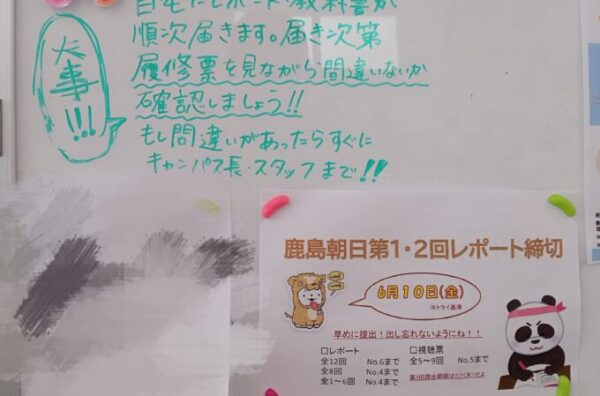 自宅にレポート・教科書が
順次届きます。届き次第
履修票を見ながら間違いないか
確認しましょう!!
もし間違いがあったらすぐに
キャンパス長・スタッフまで!!
大事!!!
鹿島朝日第1・2回レポート締切
6月10日(金)
※トライ基準
早めに提出!出し忘れないようにね!!
□レポート
全12回 No.6まで
全8回 No.4まで
全1~6回 No.4まで
□視聴票
全5~9回 No.5まで